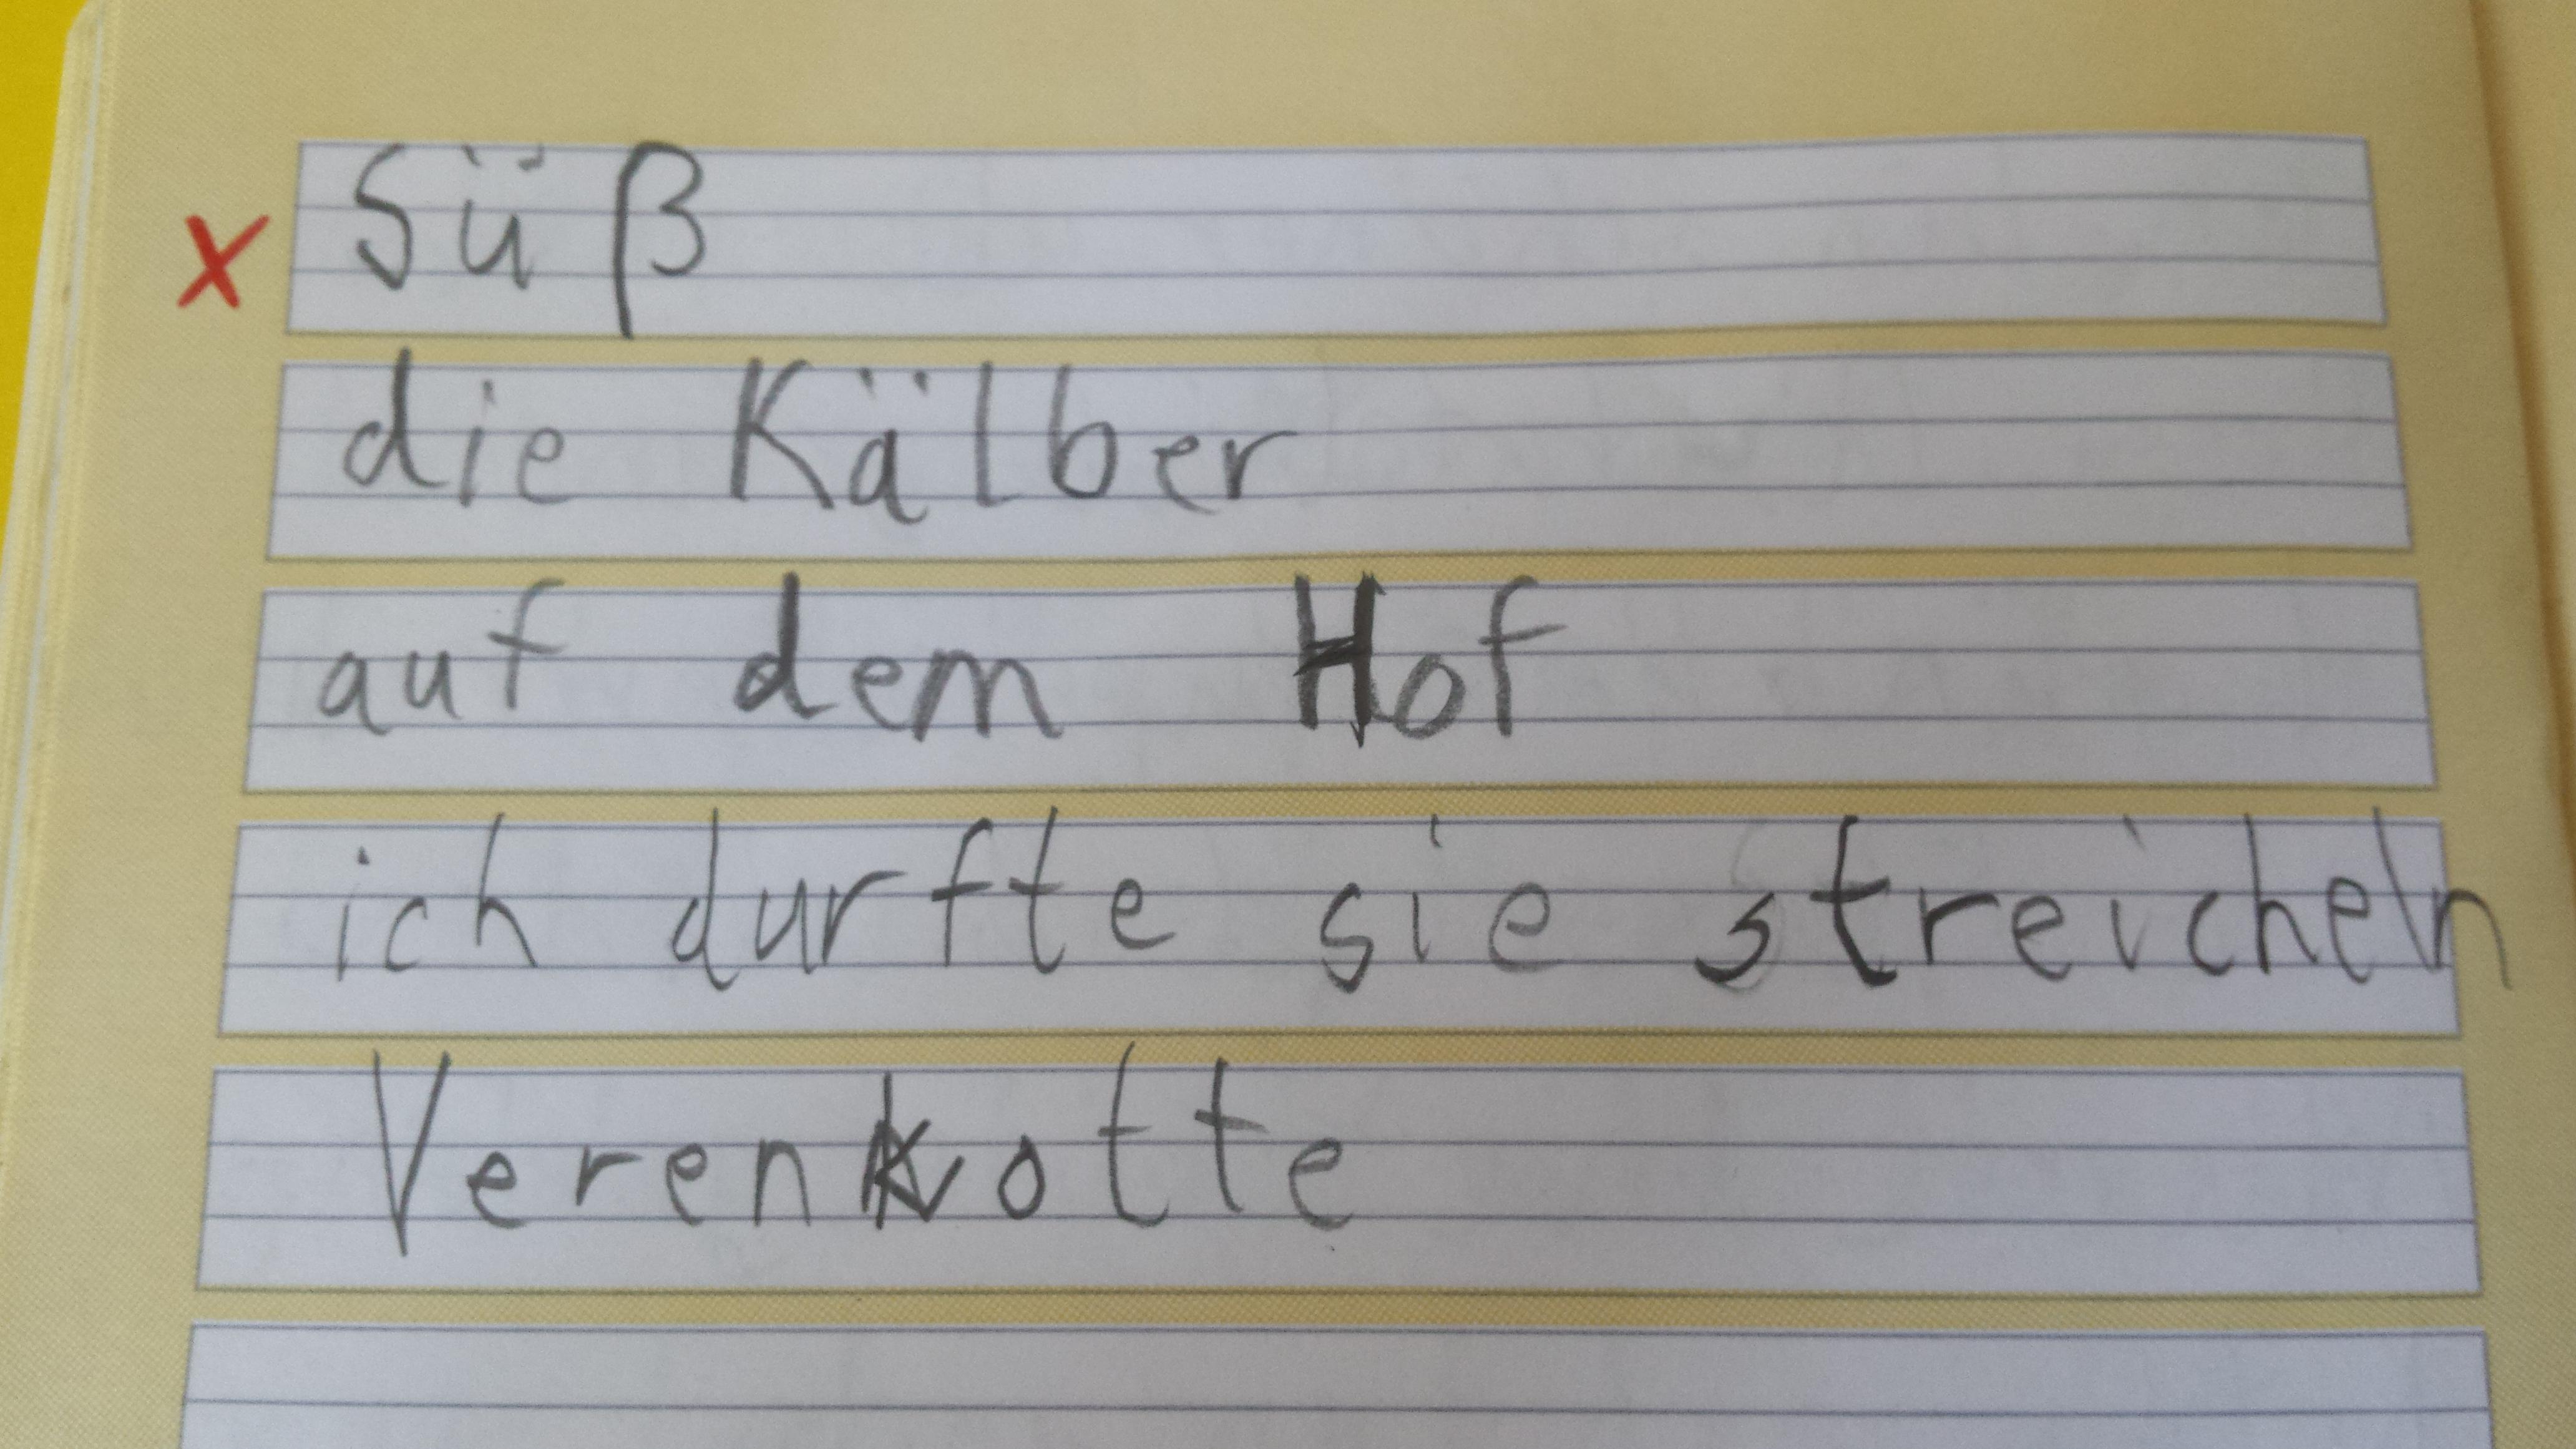 Süß
die Kälber
auf dem Hof
ich durfte sie streicheln
Verenkotte